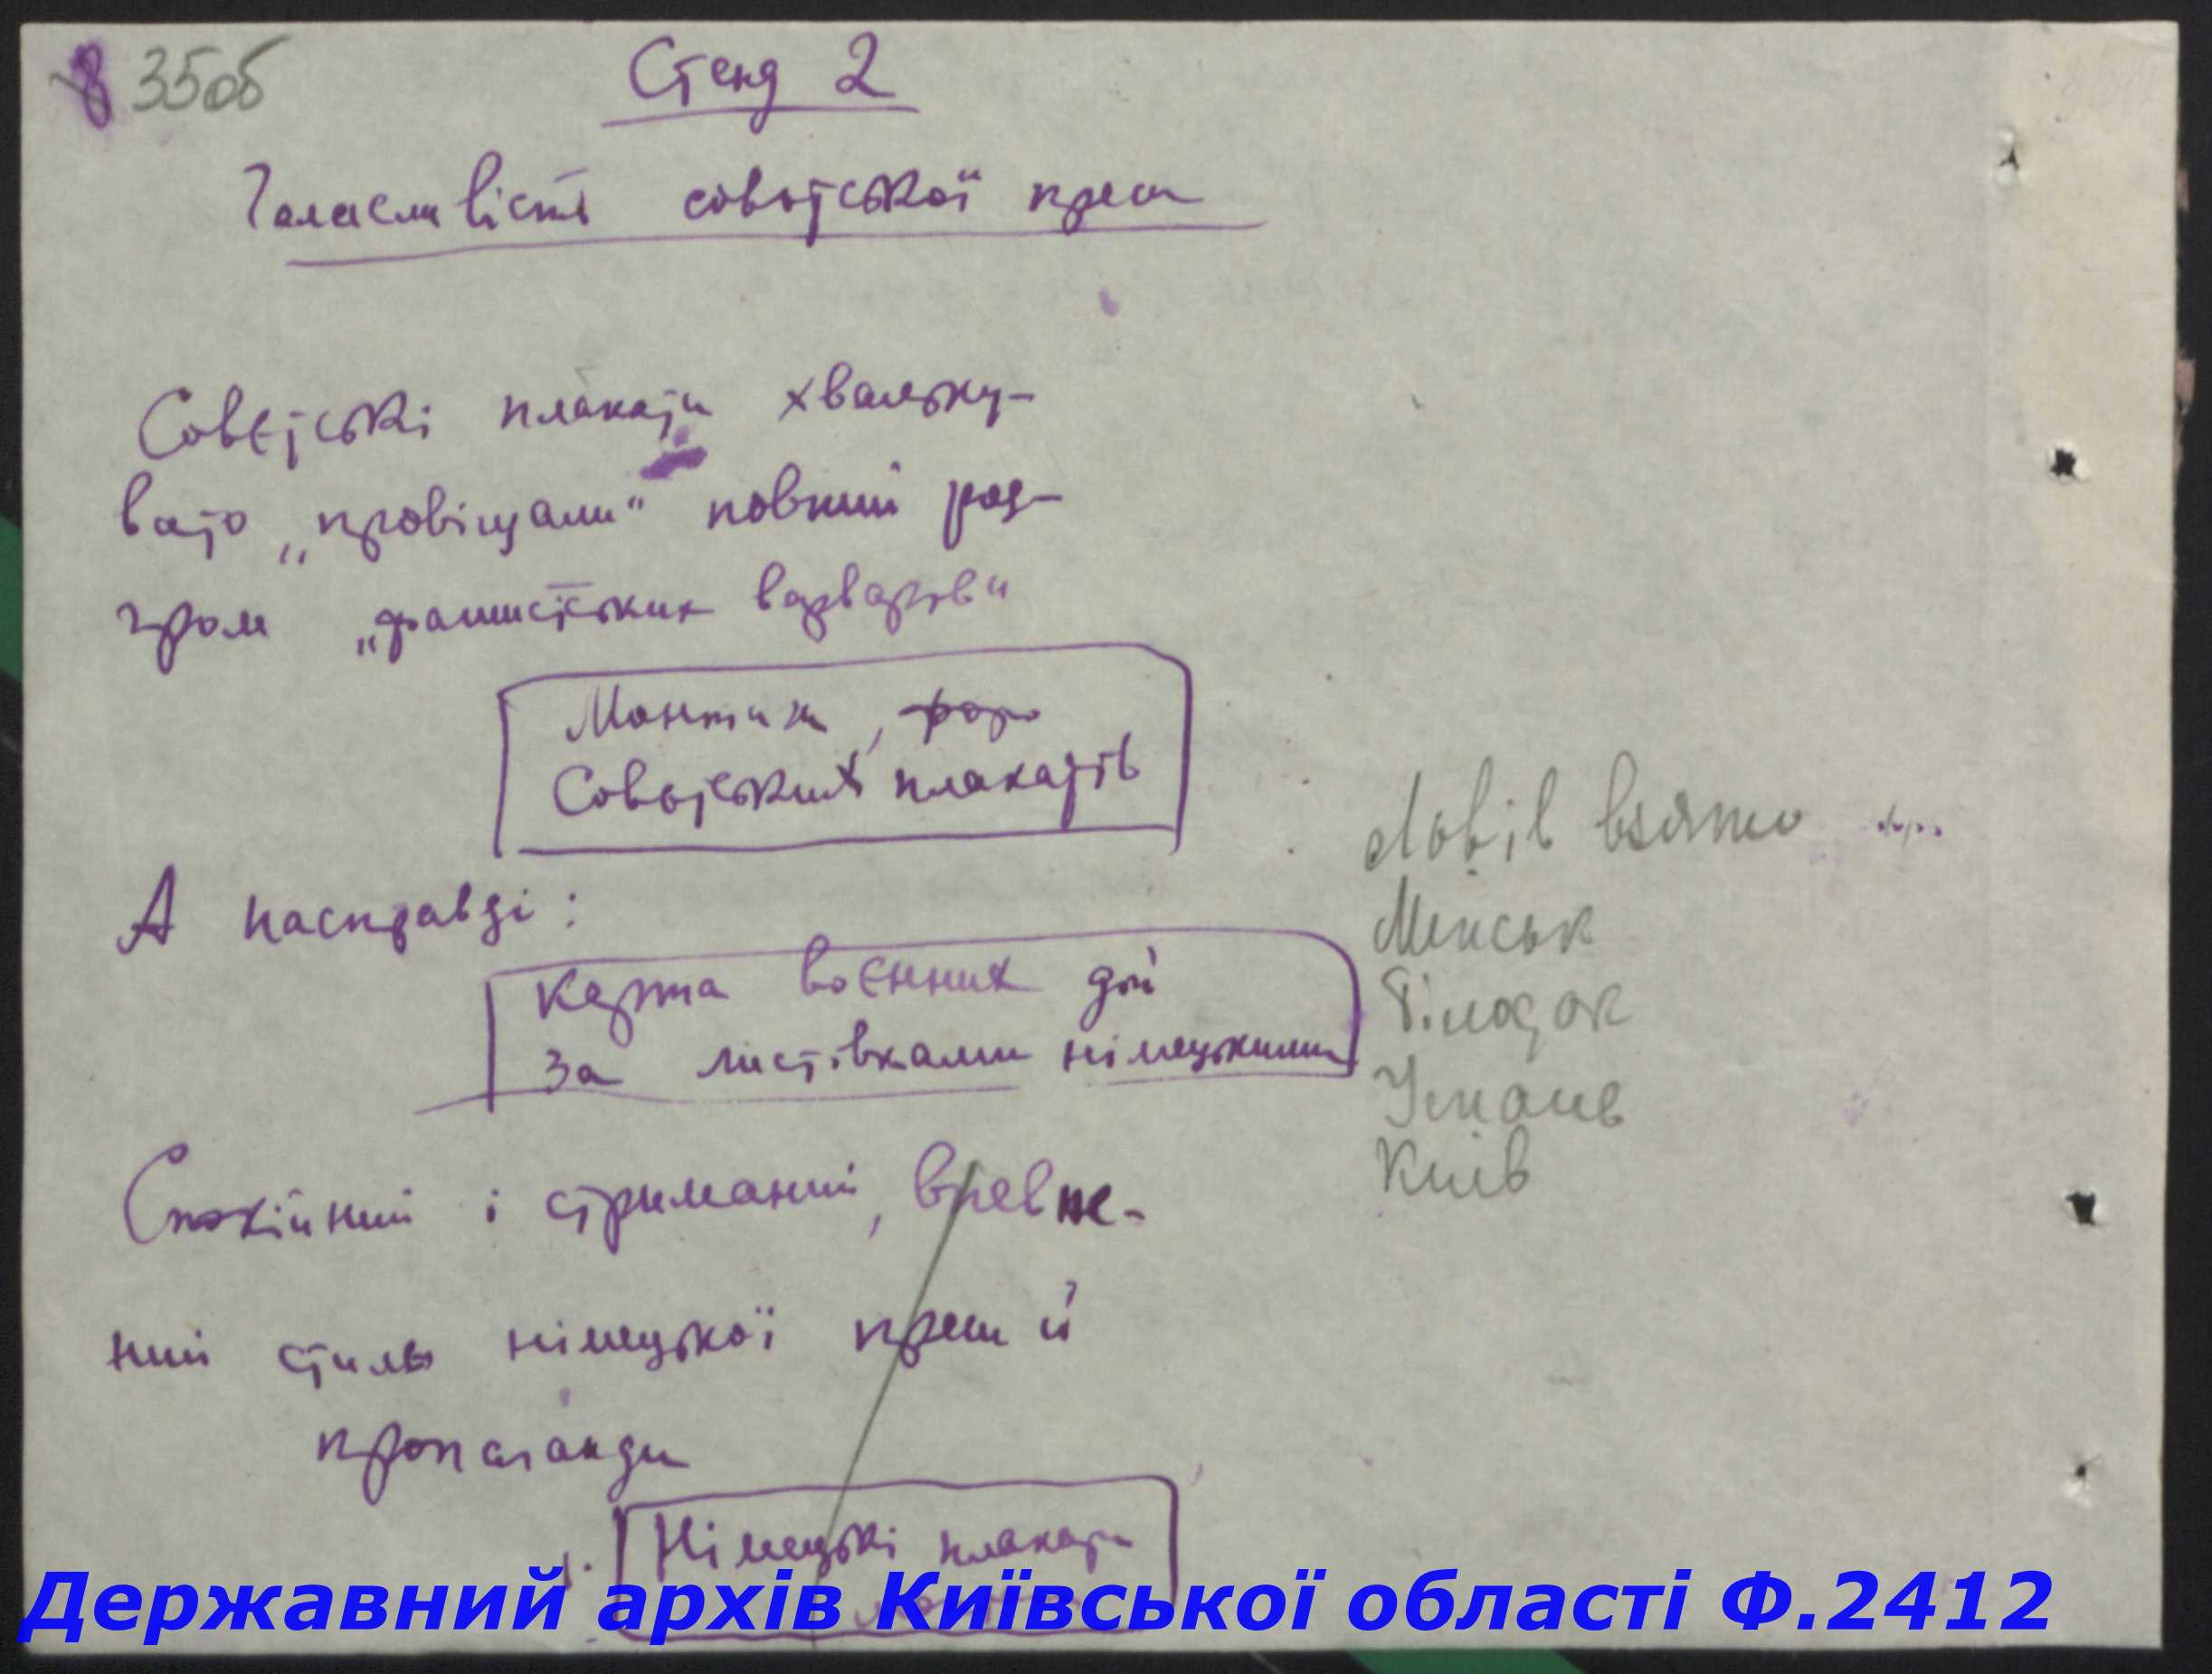 8 35об
Стенд 2
Галасливість совєтської преси
Совєтські плакати хвалькy-
вато „провіщали“ повний роз-
гром „фашистських варварів“
Монтаж, фото
Совєтських плакатів
А насправді:
Карта воєнних дій
за листівками німецькими
Львів взято
Мінськ
Умань
Київ
Спокійний і стриманий, вревне-
ний стиль німецької преси й
пропаганди
Німецькі плакати
Державний архів Київської області Ф.2412